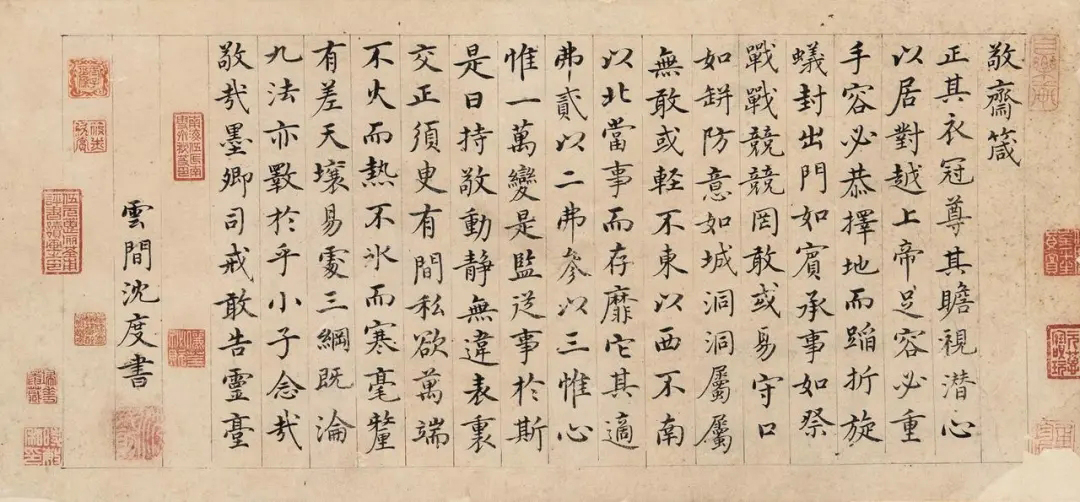 敬齋箴
正其衣冠尊其瞻視潛心
以居對越上帝足容必重
手容必恭擇地而蹈折旋
蟻封出門如賓承事如祭
戰戰兢兢罔敢或易守口
如缾防意如城洞洞屬屬
無敢或軽不東以西不南
以北當事而存靡它其適
弗貳以二弗參以三惟心
惟一萬變是監從事於斯
是日持敬動静無違表裏
交正須臾有間私欲萬端
不火而熱不氷而寒毫釐
有差天壤易處三綱既淪
九法亦斁於乎小子念哉
敬哉墨卿司戒敢告靈臺
雲間沈度書